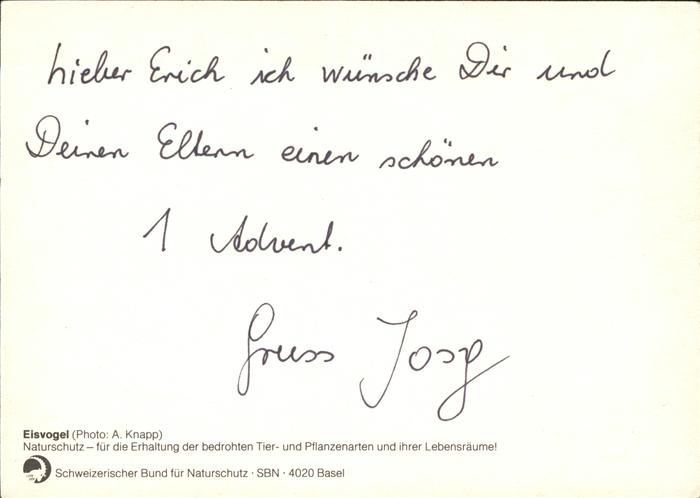 Lieber Erich ich wünsche Dir und
Deinen Eltern einen schönen
1 Advent.
Gruss
Eisvogel (Photo: A. Knapp)
Naturschutz – für die Erhaltung der bedrohten Tier- und Pflanzenarten und ihrer Lebensräume!
Schweizerischer Bund für Naturschutz · SBN · 4020 Basel